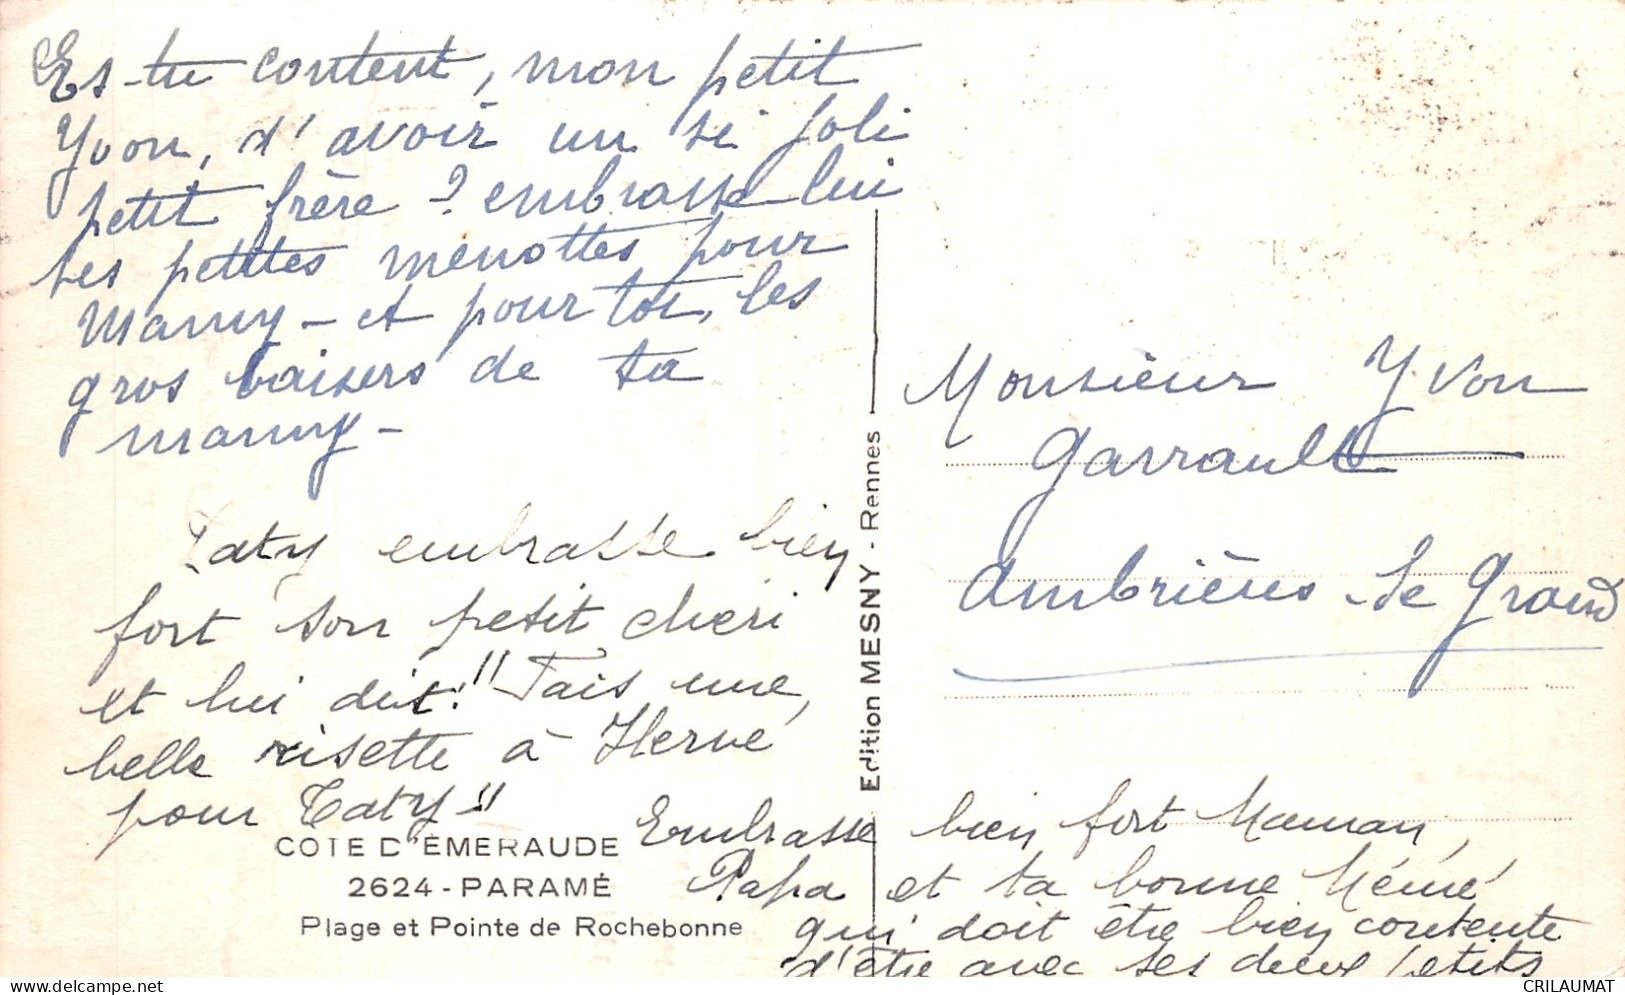 Es-tu content, mon petit
Yvon, d'avoir un si joli
petit frère ? embrasse-lui
ses petites menottes pour
Mamy - et pour toi, les
gros baisers de ta
mamy -
Taty embrasse bien
fort son petit cheri
et lui dit: "Fais une
belle risette à Herve
pour Taty"
COTE D'ÉMERAUDE
2624 - PARAMÉ
Plage et Pointe de Rochebonne
Edition MESNY - Rennes
Monsieur Yvon
Garrault
Ambrières-le Grand
Embrasse bien fort Maman,
Papa et ta bonne Mémé
qui doit être bien contente
d'être avec ses deux petits
CRILAUMAT